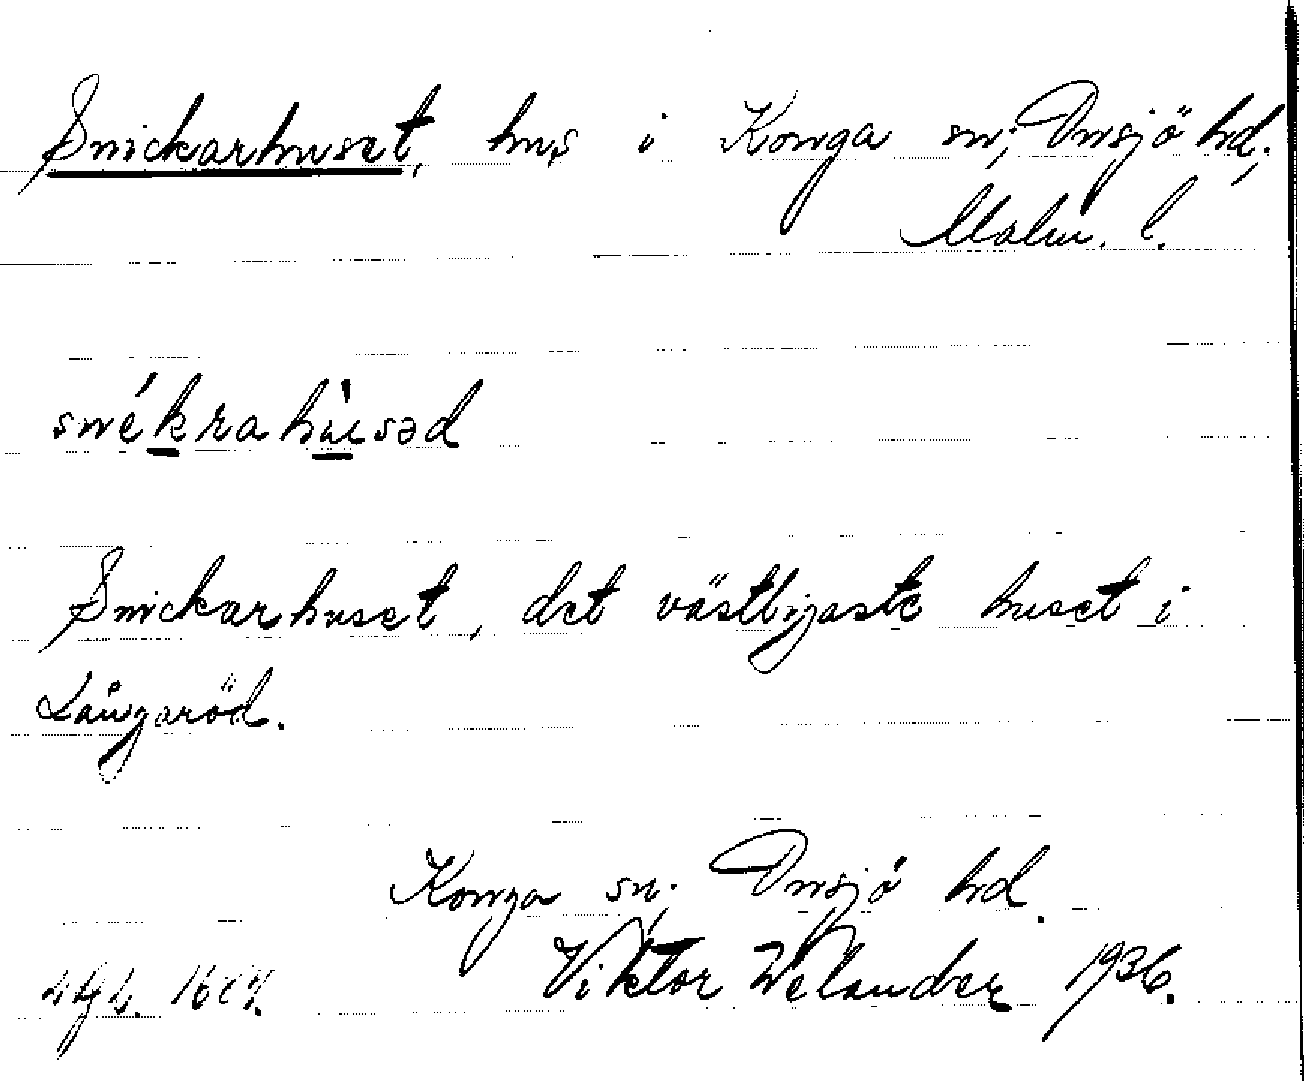 Snickarhuset, hus i Konga sn, Onsjö hd,
Malm. l.
snékrahùsəd
Snickarhuset, det västligaste huset i
Långaröd.
Konga sn, Onsjö hd.
Viktor Welander 1936.